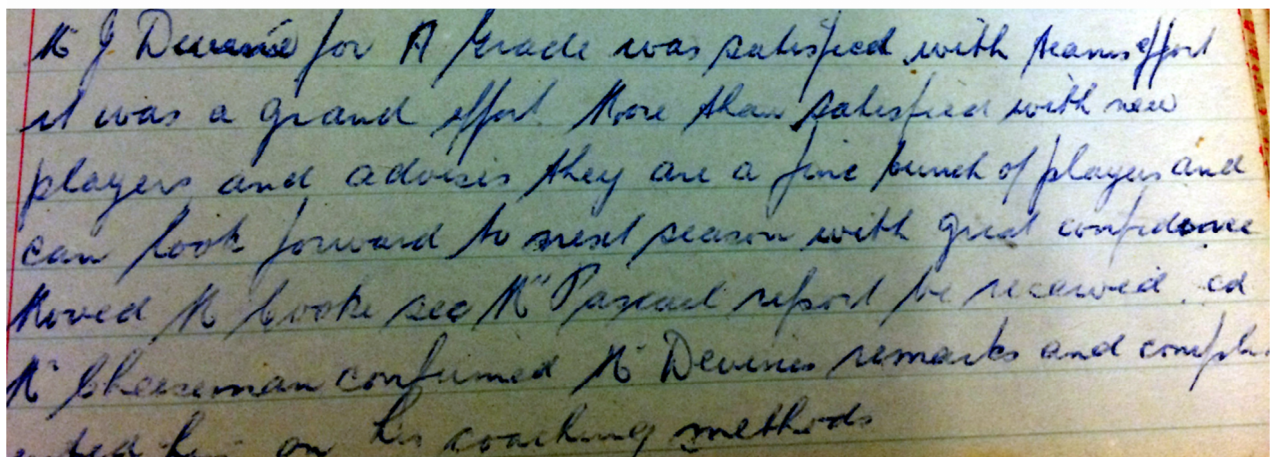 Mr J Devine for A Grade was satisfied with teams effort
it was a grand effort. More than satisfied with new
players and advises they are a fine bunch of players and
can look forward to next season with great confidence
Moved Mr Cooke sec Mr report be received. cd
Mr Cheeseman confirmed Mr Devines remarks and compl
on his coaching methods